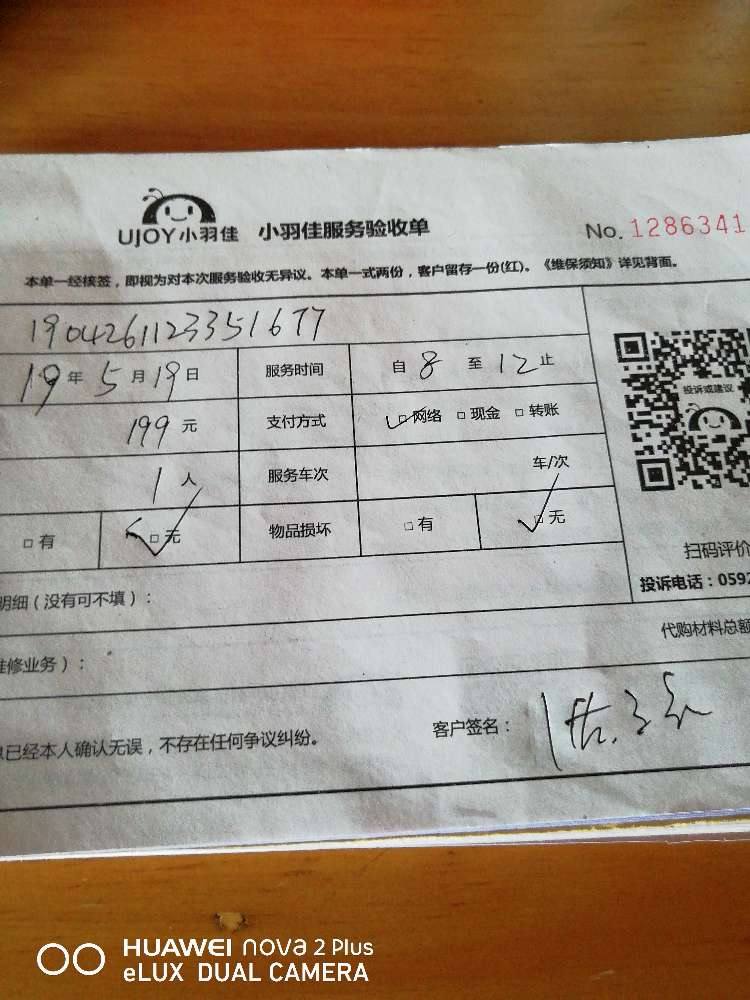 UJOY小羽佳 小羽佳服务验收单 No. 1286341
本单一经核签，即视为对本次服务验收无异议。本单一式两份，客户留存一份(红)。《维保须知》详见背面。
1904261123351677
19年5月19日 服务时间 自8至12止
投诉或建议
199元 支付方式 □网络 □现金 □转账
1人 服务车次 车/次
□有 □无 物品损坏 □有 □无
扫码评价
明细（没有可不填）： 投诉电话：0592
维修业务）： 代购材料总额
已经本人确认无误，不存在任何争议纠纷。 客户签名：
HUAWEI nova 2 Plus
eLUX DUAL CAMERA